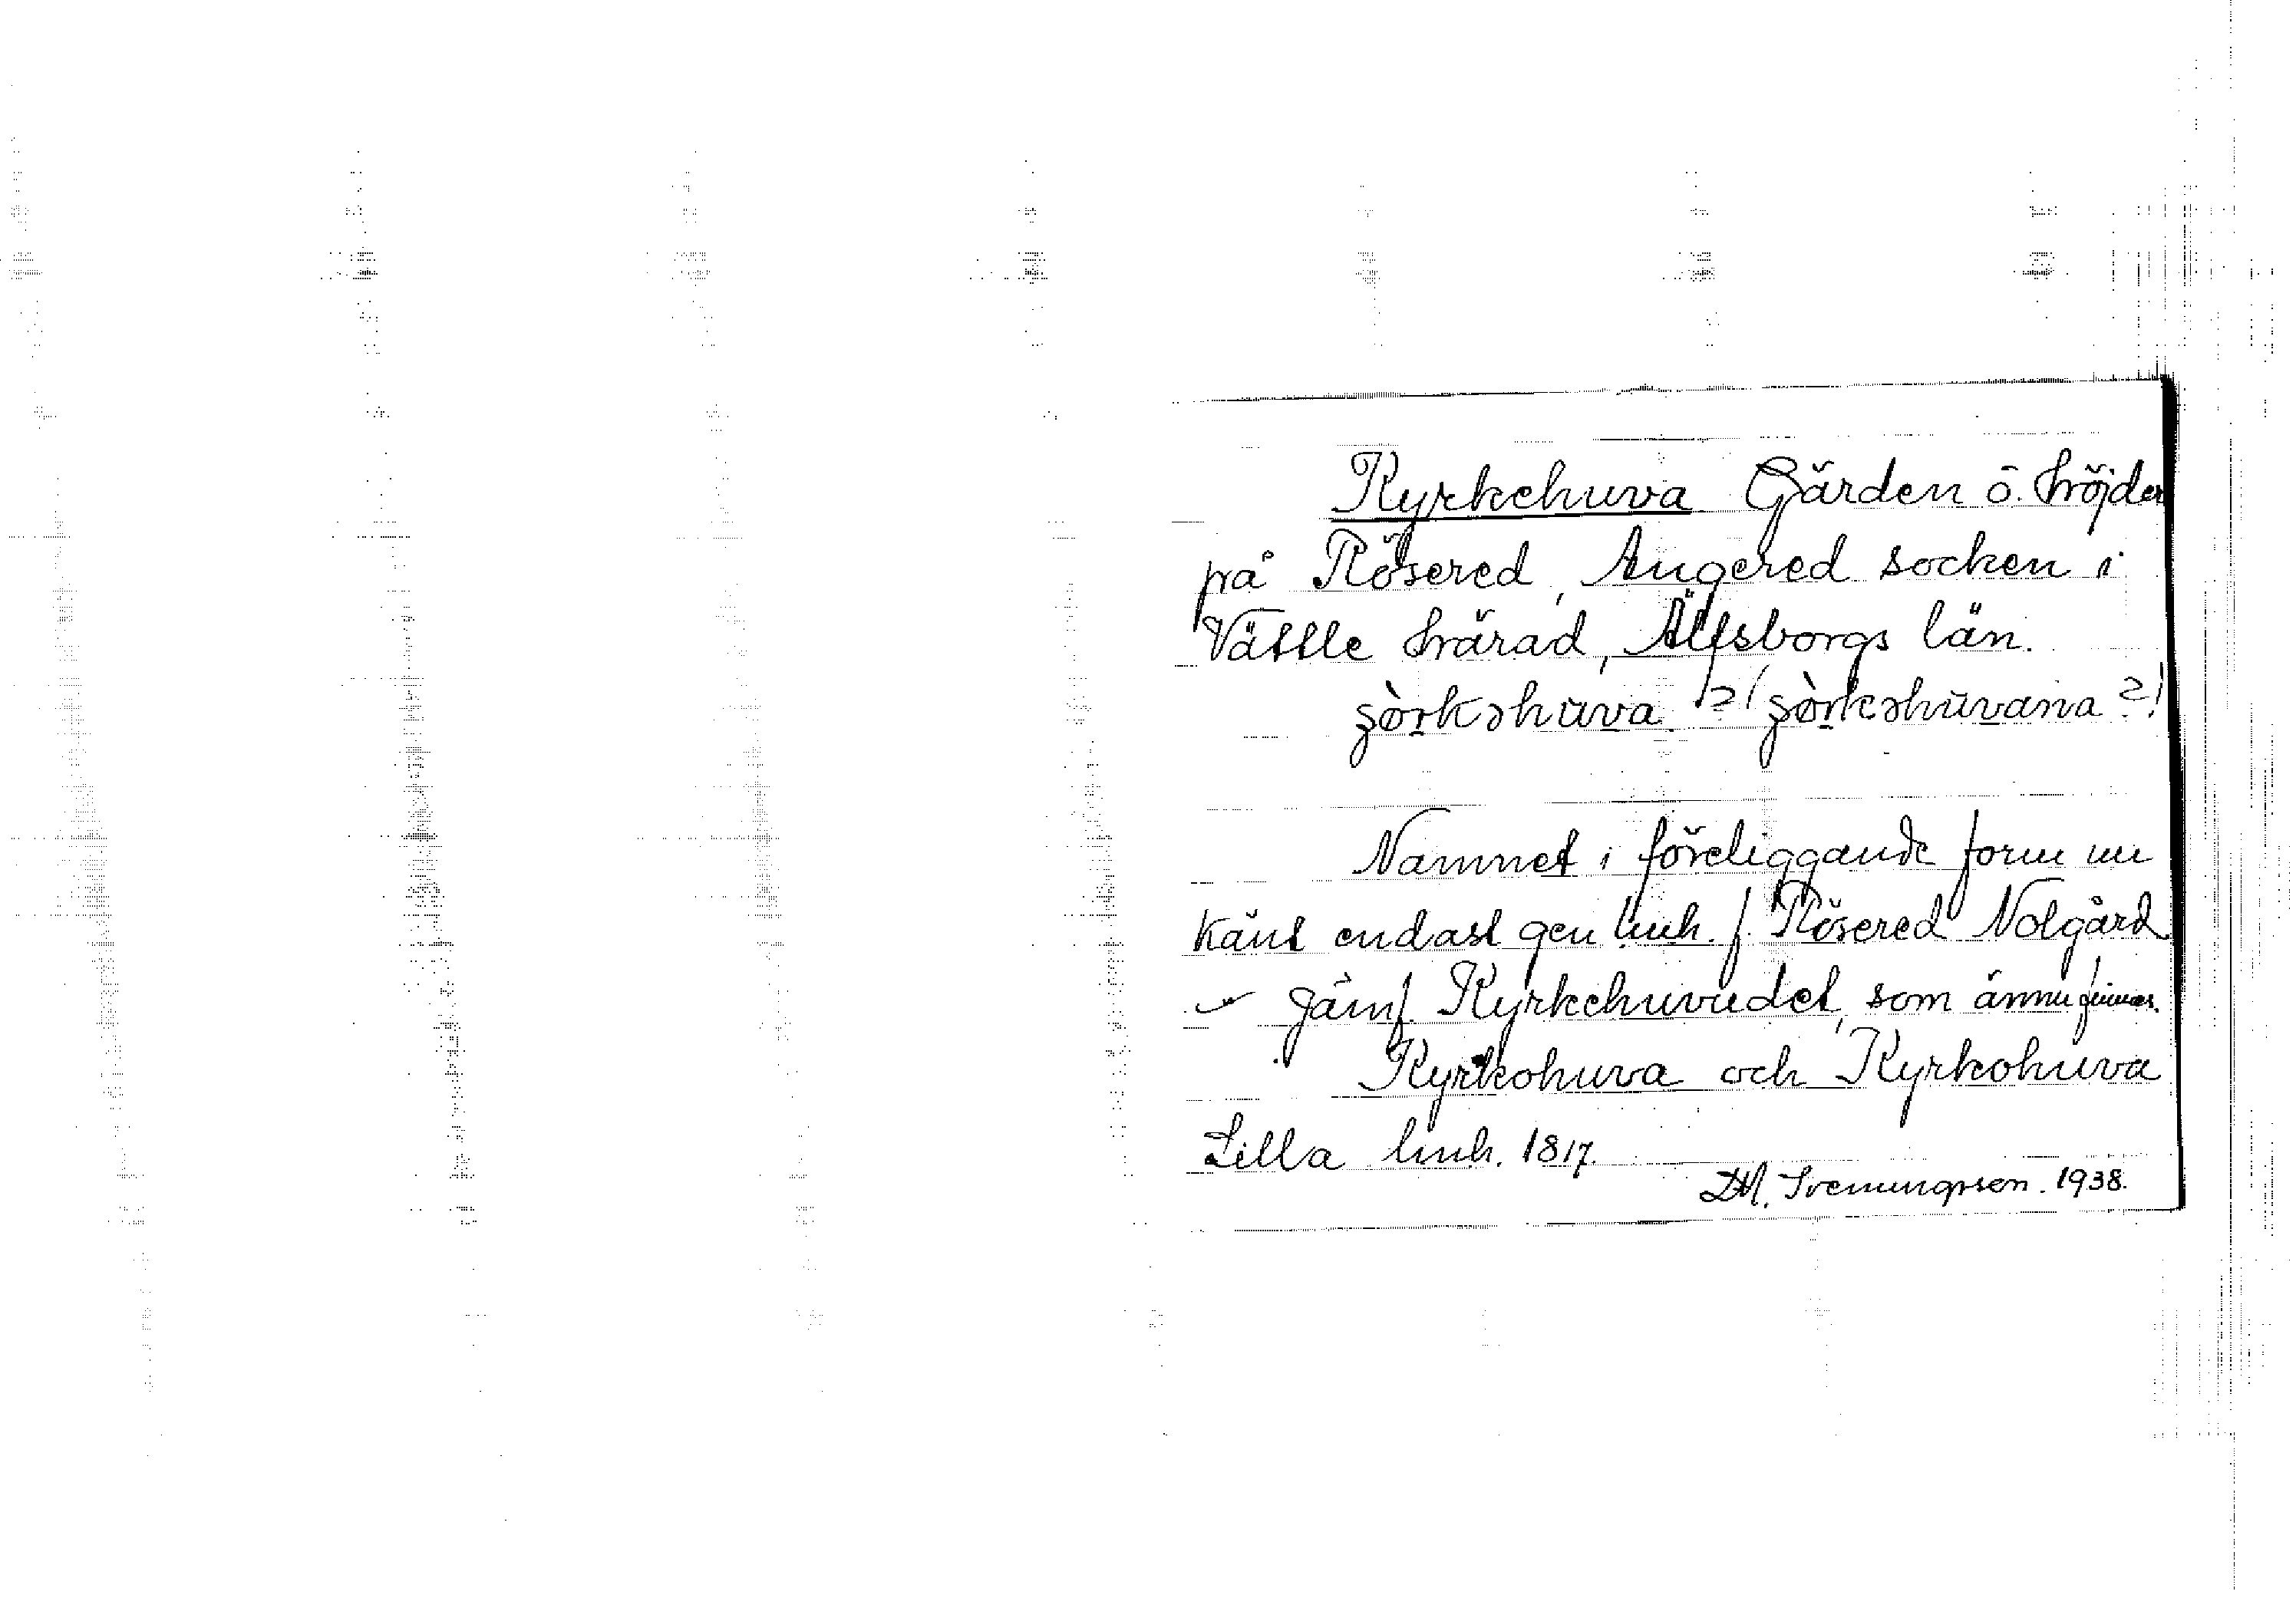 Kyrkehuva Gärden ö. höjder
på Rösered, Angered socken i
Vättle härad, Älfsborgs län.
Namnet i föreliggande form nu
känt endast gen lmh. f. Rösered Nolgård
Jämf. Kyrkehuvudet, som ännu finnes.
Kyrkohuva och Kyrkohuva
Lilla lmh. 1817.
D.M. Svenungsson. 1938.